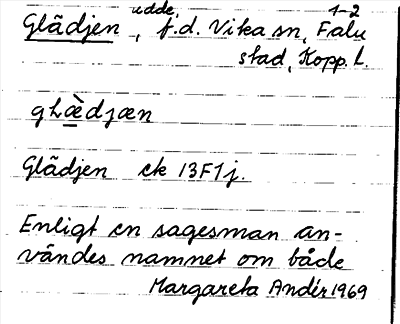 udde, 1-2
Glädjen, f.d. Vika sn, Falu
stad, Kopp. l.
gLæ̀djæn
Glädjen ek 13F1j.
Enligt en sagesman an-
vändes namnet om både
Margareta Andér 1969